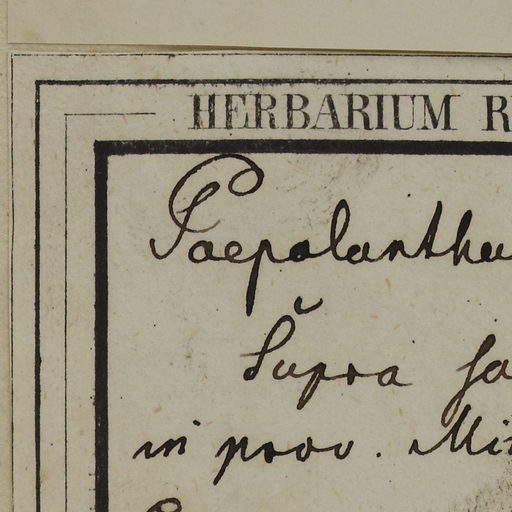 HERBARIUM R
Paepalanthu
Supra fa
in prov. Min